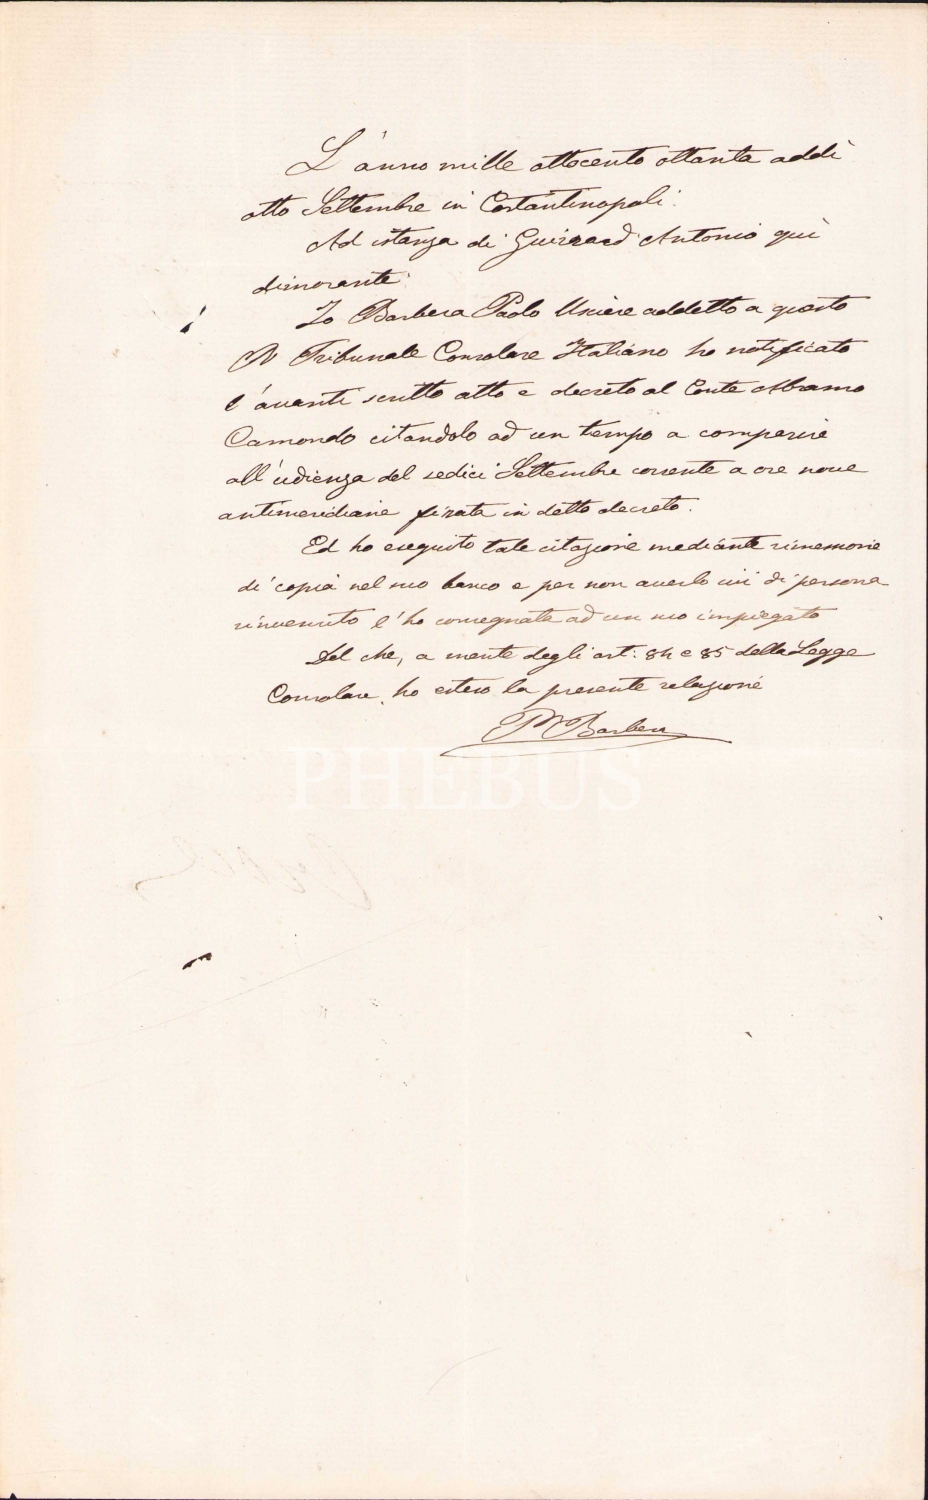 L'anno mille ottocento ottanta addì
otto Settembre in Costantinopoli.
Ad istanza di Guizzard Antonio quì
dimorante.
Io Barbera Paolo Usciere addetto a questo
R Tribunale Consolare Italiano ho notificato
l'avanti scritto atto e decreto al Conte Abramo
Camondo citandolo ad un tempo a comparire
all'udienza del sedici Settembre corrente a ore nove
antimeridiane fissata in detto decreto.
Ed ho eseguito tale citazione mediante rimessione
di copia nel suo banco e per non averlo ivi di persona
rinvenuto l'ho consegnata ad un suo impiegato
Del che, a mente degli art: 84 e 85 della Legge
Consolare, ho esteso la presente relazione
P Barbera
PHEBUS